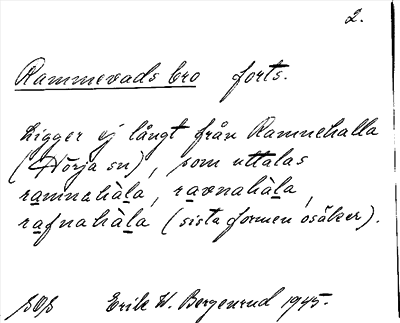 2.
Rammevads bro forts.
Ligger ej långt från Ramnehalla
(Dörja sn), som uttalas
ramnahàla, ravnahàla,
rafnahàla (sista formen osäker).
SOS Erik W. Bergenrud 1945.